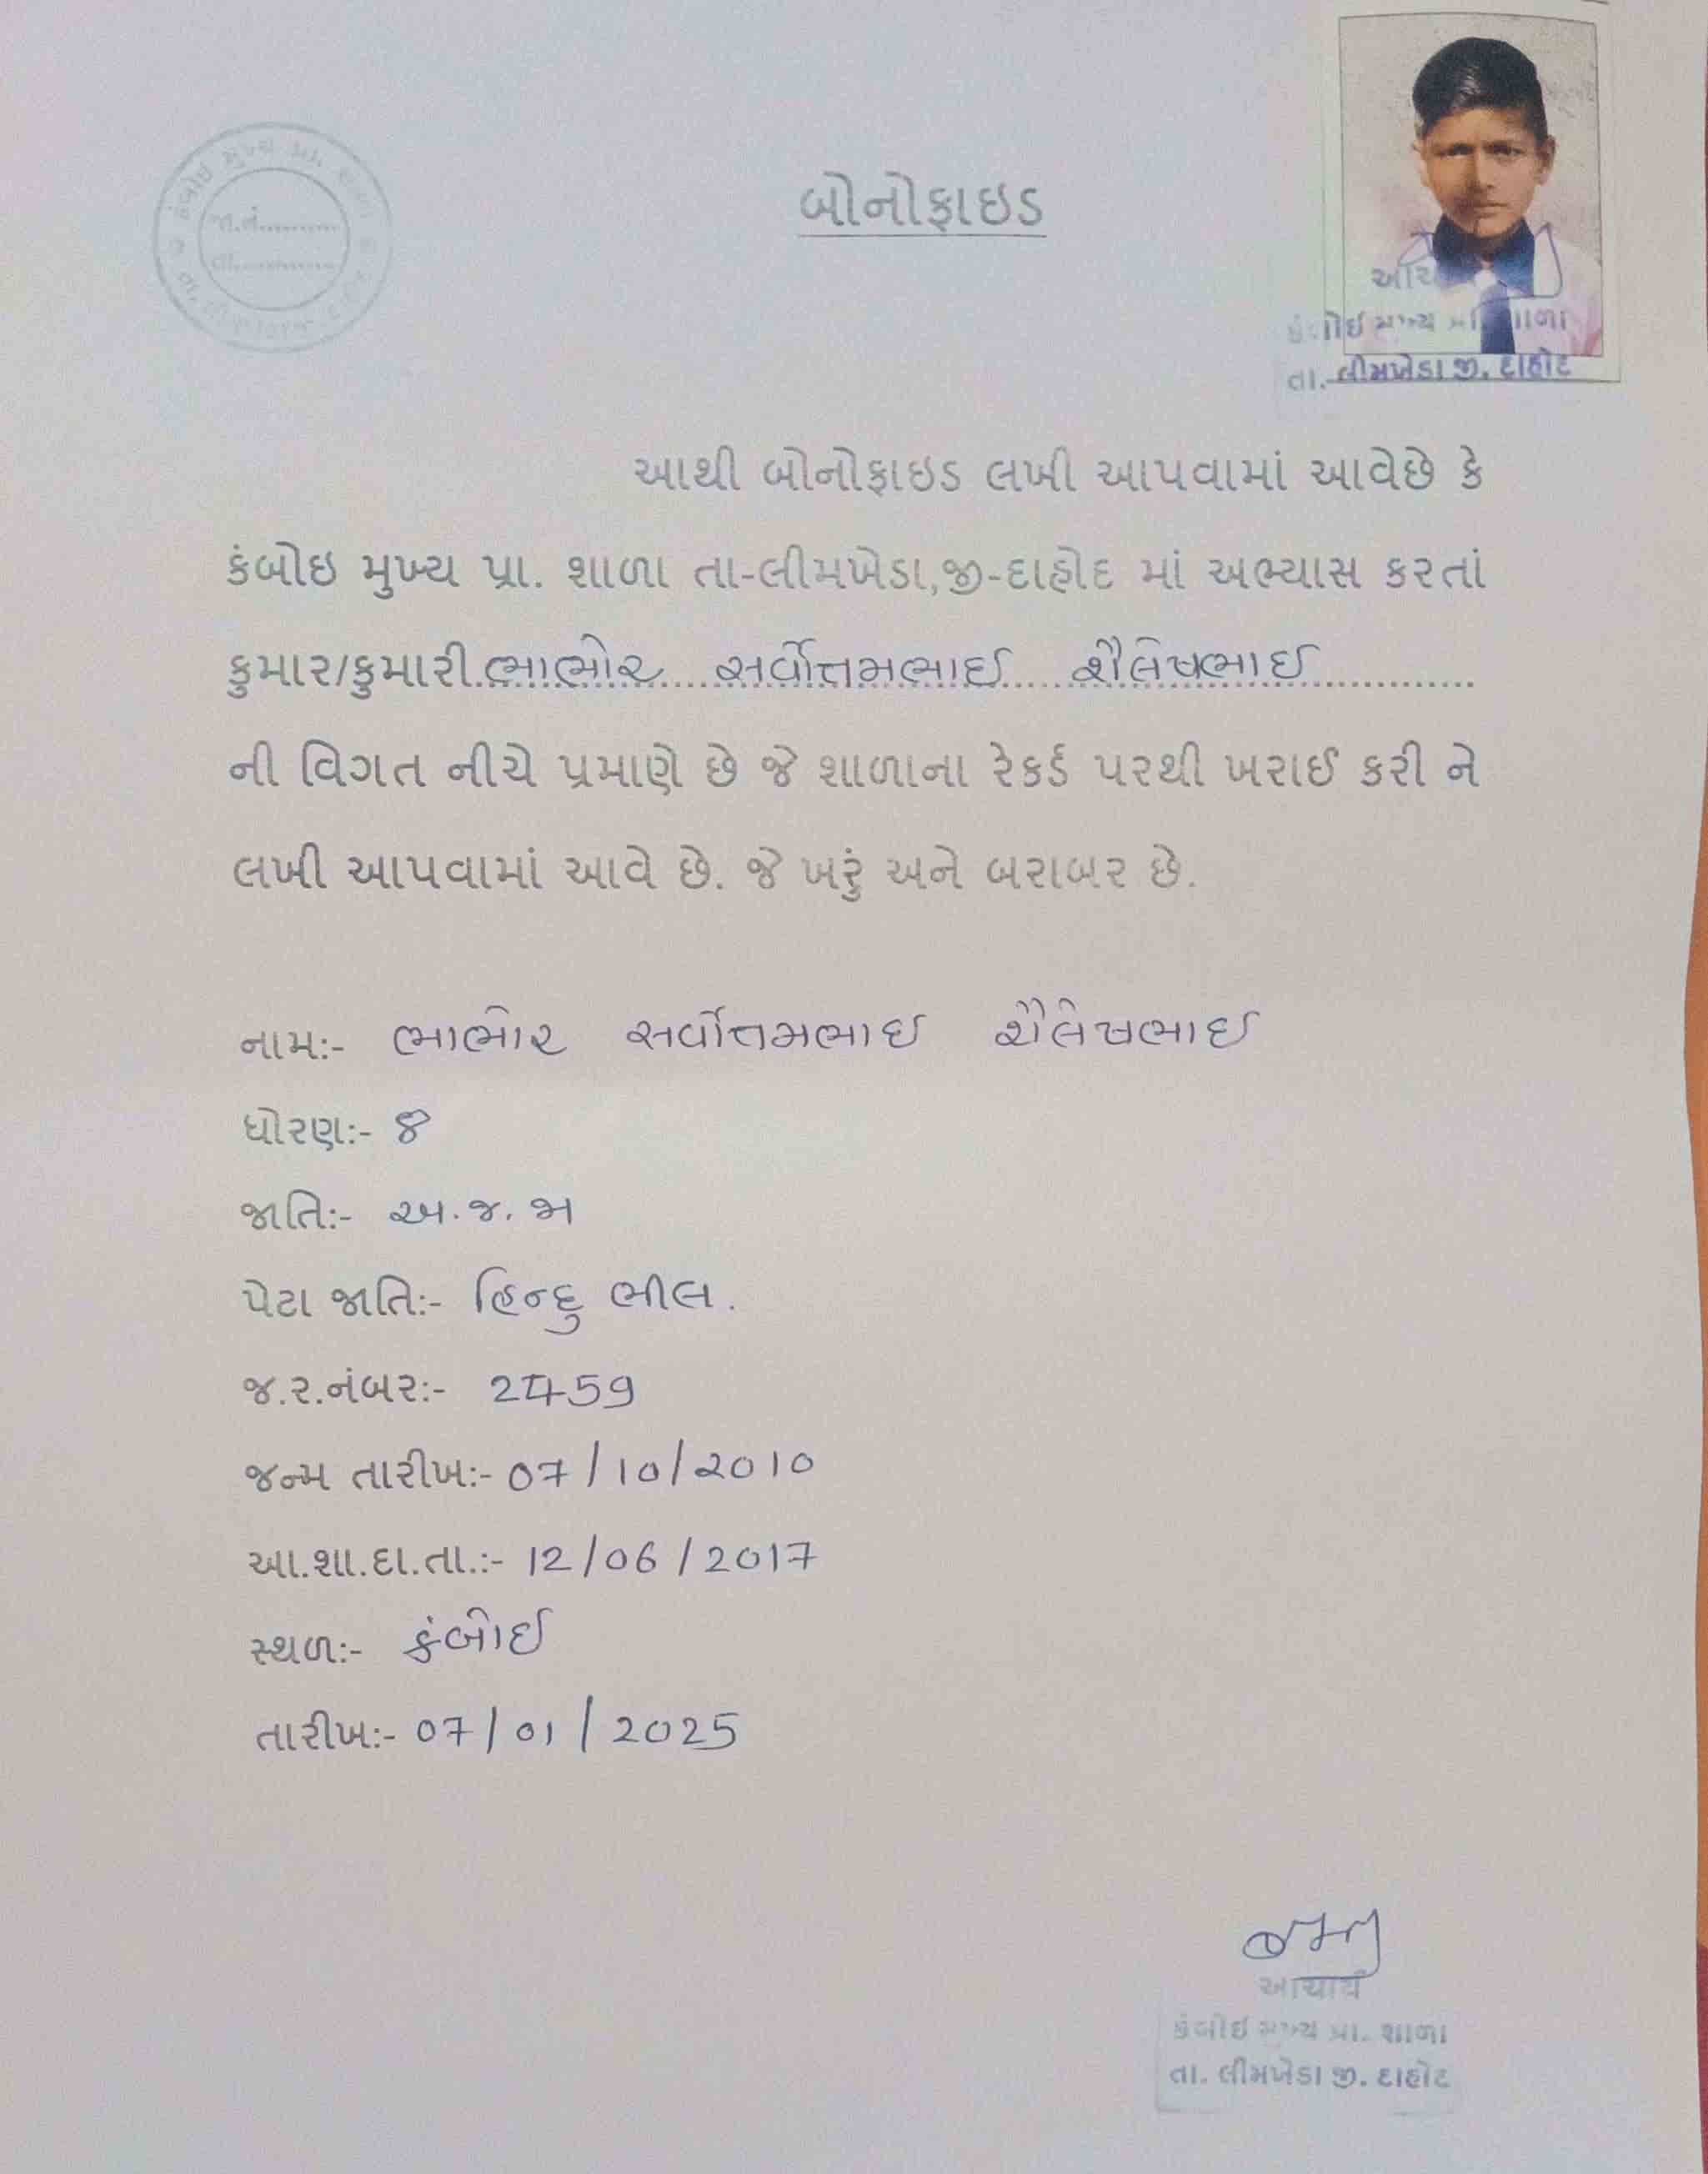 કંબોઇ મુખ્ય પ્રા. શાળા
જા.નં............
તા...............
બોનોફાઇડ
કંબોઈ મુખ્ય પ્રા. શાળા
તા. લીમખેડા જી. દાહોદ
આથી બોનોફાઇડ લખી આપવામાં આવેછે કે
કંબોઇ મુખ્ય પ્રા. શાળા તા-લીમખેડા,જી-દાહોદ માં અભ્યાસ કરતાં
કુમાર/કુમારી ભાભોર સર્વોત્તમભાઈ શૈલેષભાઈ
ની વિગત નીચે પ્રમાણે છે જે શાળાના રેકર્ડ પરથી ખરાઈ કરી ને
લખી આપવામાં આવે છે. જે ખરું અને બરાબર છે.
નામ:- ભાભોર સર્વોત્તમભાઈ શૈલેષભાઈ
ધોરણ:- ૪
જાતિ:- અ.જ.જા
પેટા જાતિ:- હિન્દુ ભીલ.
જ.ર.નંબર:- 2459
જન્મ તારીખ:- 07/10/2010
આ.શા.દા.તા.:- 12/06/2017
સ્થળ:- કંબોઈ
તારીખ:- 07/01/2025
આચાર્ય
કંબોઈ મુખ્ય પ્રા. શાળા
તા. લીમખેડા જી. દાહોદ